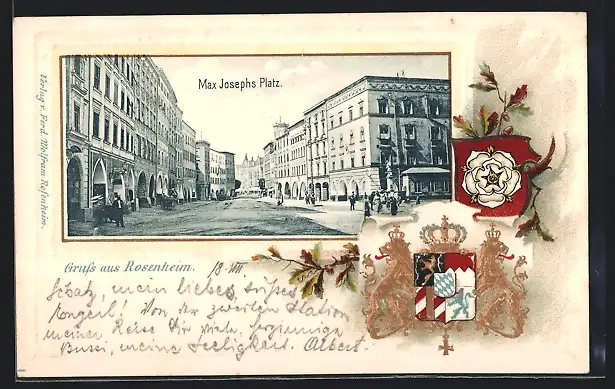 Max Josephs Platz.
Verlag v. Ferd. Wolfram Rosenheim.
Gruß aus Rosenheim. 18. VII
Schatz, mein liebes, süßes
! Von der zweiten Station
meiner Reise Dir viele,
Bussi, meine Seeligkeit. Albert.